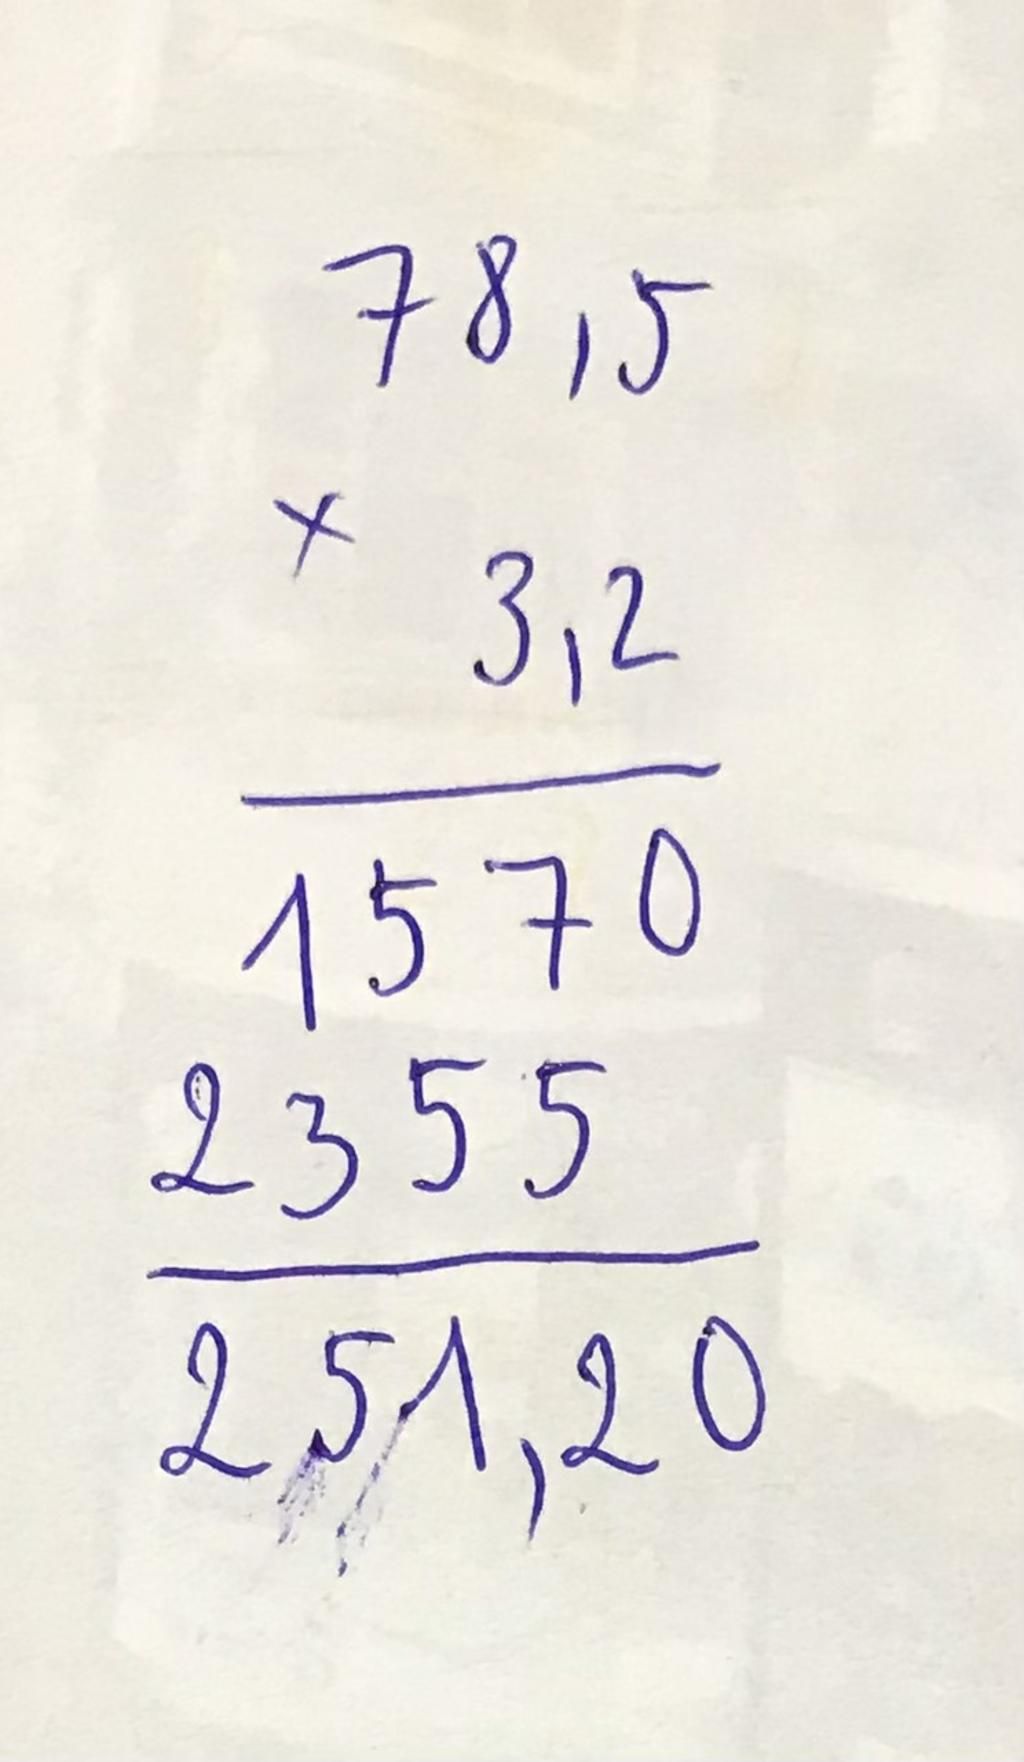 78,5
×
3,2
1570
2355
251,20